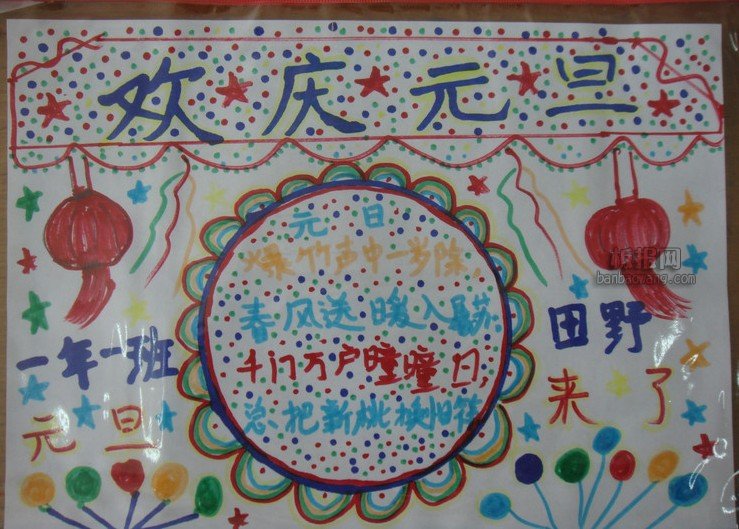 欢庆元旦
元日
爆竹声中一岁除,
春风送暖入屠苏.
千门万户瞳瞳日,
总把新桃换旧符
一年一班
元旦
田野
来了
板报网
banbaowang.com